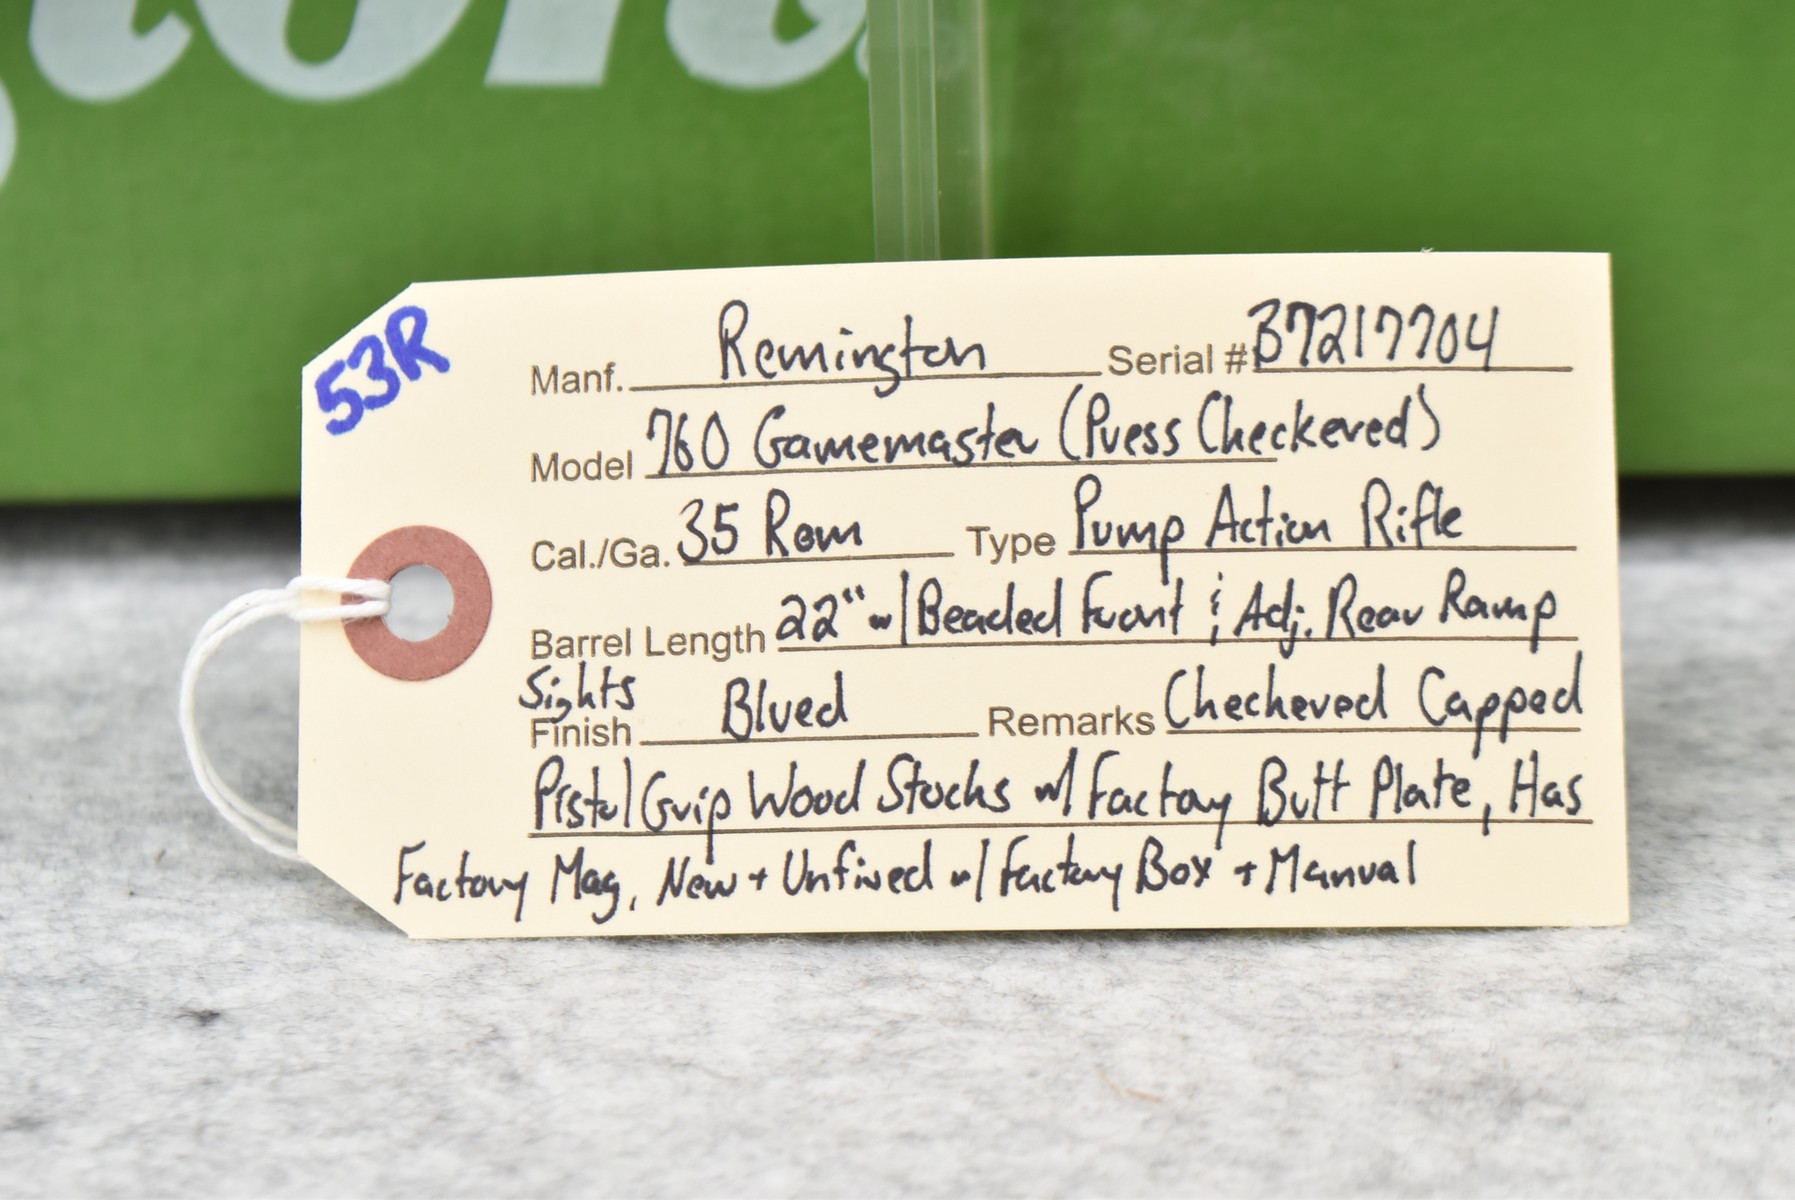 53R
Manf. Remington Serial # B7217704
Model 760 Gamemaster (Press Checkered)
Cal./Ga. 35 Rem Type Pump Action Rifle
Barrel Length 22" w/ Beaded Front & Adj. Rear Ramp
Sights
Finish Blued Remarks Checkered Capped
Pistol Grip Wood Stocks w/ Factory Butt Plate, Has
Factory Mag, New + Unfired w/ Factory Box + Manual